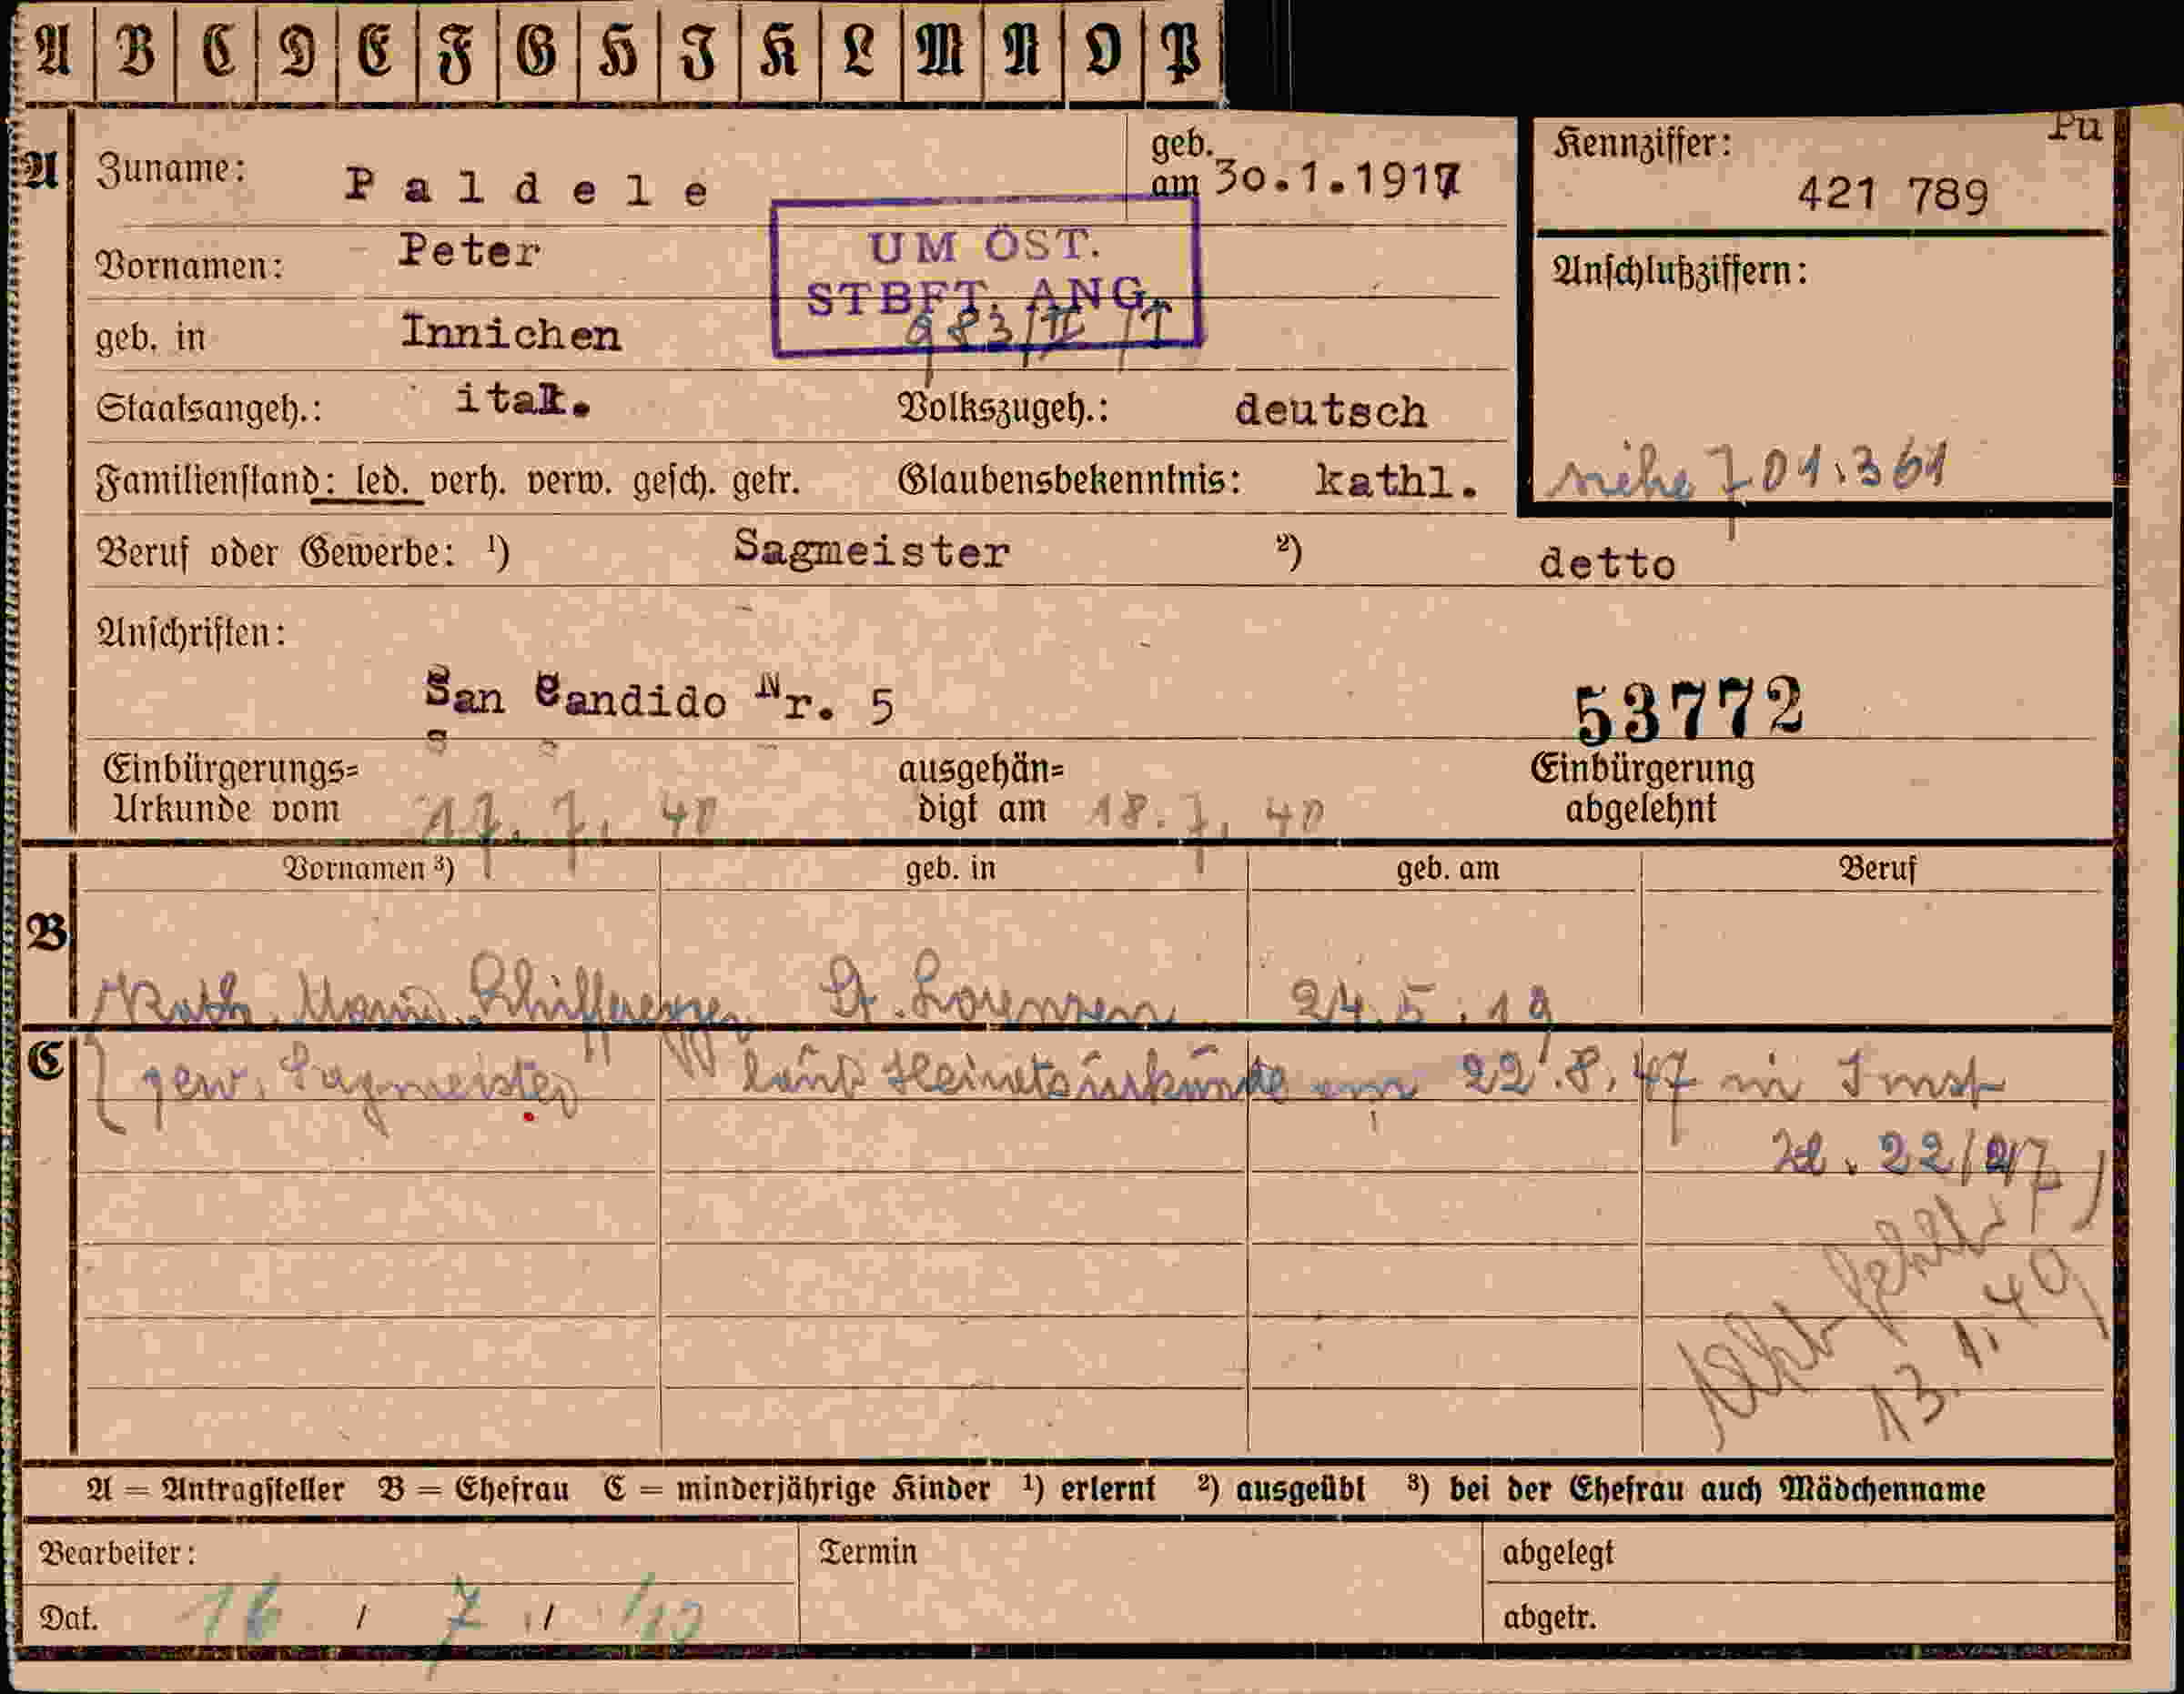 A B C D E F G H I K L M N O P
A Zuname: Paldele geb. am 30.1.1917
Kennziffer: Pu
421 789
Vornamen: Peter
UM ÖST.
STBFT. ANG.
983/II
geb. in Innichen
Anschlußziffern:
Staatsangeh.: ital. Volkszugeh.: deutsch
Familienstand: led. verh. verw. gesch. getr. Glaubensbekenntnis: kathl.
siehe 701.361
Beruf oder Gewerbe: ¹) Sagmeister ²) detto
Anschriften:
San Candido Nr. 5
53772
Einbürgerungs=Urkunde vom 17. 7. 40 ausgehän=digt am 18. 7. 40 Einbürgerung abgelehnt
Vornamen ³) geb. in geb. am Beruf
B
Kath. Maria St. Lorenzen 24.5.19
C
gew. Sagmeister laut Heimatsurkunde am 22.8.47 in Imst
Zl. 22/47
Akt fehlt
13.1.49
A = Antragsteller B = Ehefrau C = minderjährige Kinder ¹) erlernt ²) ausgeübt ³) bei der Ehefrau auch Mädchenname
Bearbeiter: Termin abgelegt
Dat. 16 / 7 / 40 abgetr.